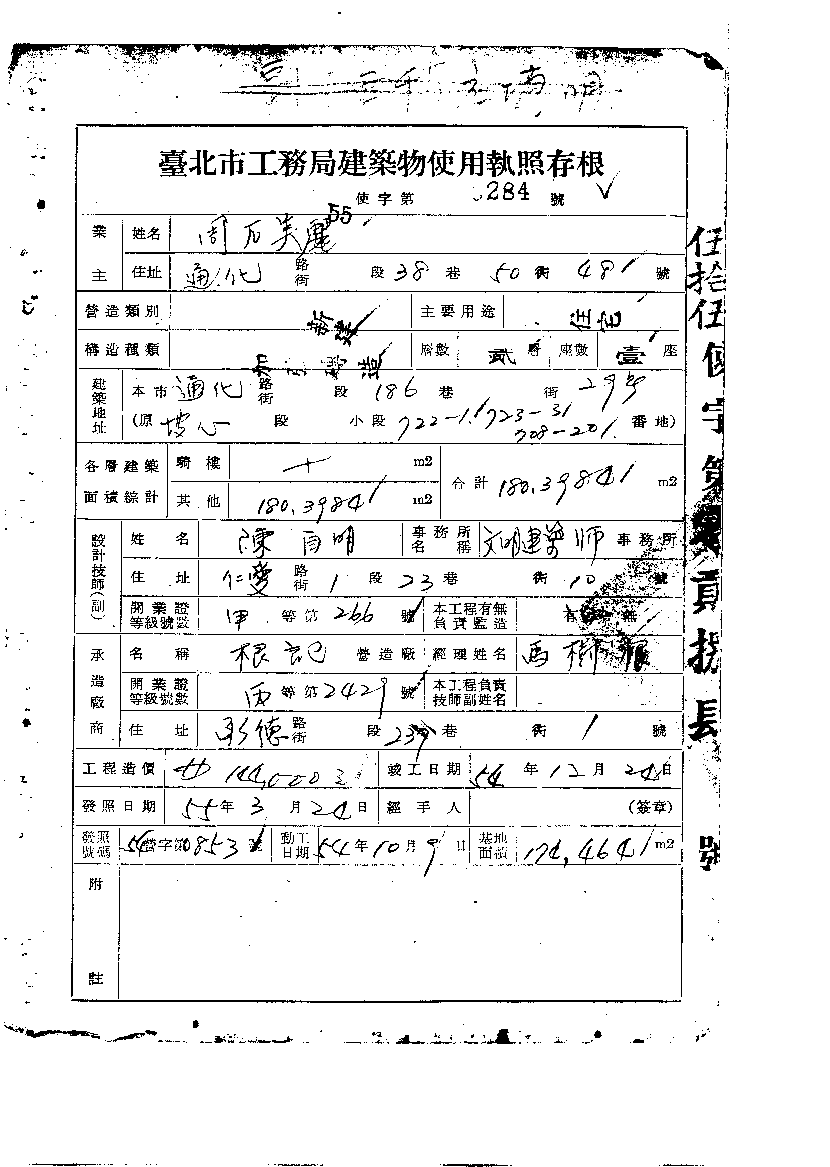 臺北市工務局建築物使用執照存根
使字第 55 284 號
業主 姓名 周 美麗
住址 通化 路街 段 38 巷 50 衖 48 號
營造類別 新建 主要用途 住宅
構造種類 加強磚造 層數 貳 層 座數 壹 座
建築地址 本市 通化 路街 段 186 巷 衖 29號
(原 坡心 段 小段 722-1. 723-31 番地)
708-20
各層建築面積綜計 騎樓 m2 合計 180.3984 m2
其他 180.3984 m2
設計技師(副) 姓名 陳 明 事務所名稱 文明建築師 事務所
住址 仁愛 路街 1 段 23 巷 衖 10 號
開業證等級號數 甲 等第 266 號 本工程有無負責監造 有 無
承造廠商 名稱 根記 營造廠 經理姓名 馬樹
開業證等級號數 丙 等第 2429 號 本工程負責技師副姓名
住址 德 路街 段 239 巷 衖 1 號
工程造價 竣工日期 54 年 12 月 24 日
發照日期 55 年 3 月 24 日 經手人 (簽章)
發照號碼 54 營字第 0853 號 動工日期 54 年 10 月 9 日 基地面積 174.464 m2
附註
伍拾伍使字第 貳捌 號